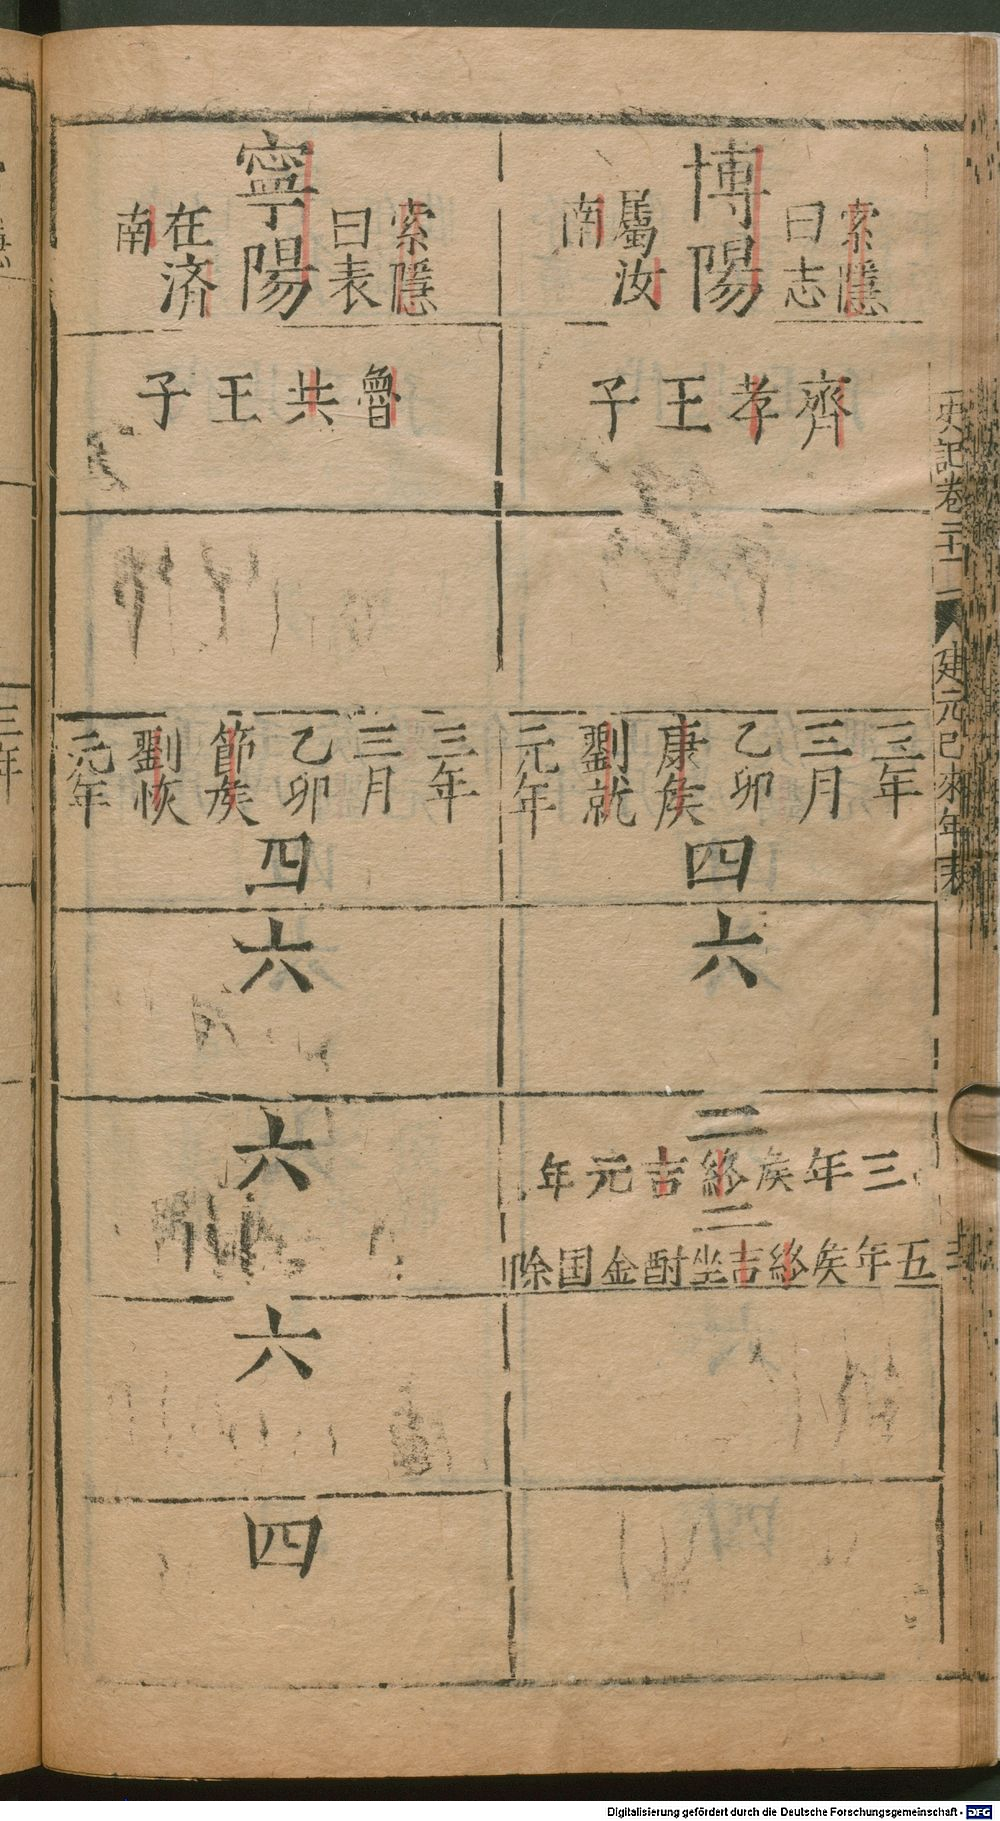 博陽
索隱
曰志
屬汝
南
齊孝王子
三年
三月
乙卯
康矦
劉就
元年
四
六
二
三年矦終吉元年
二
五年矦終吉坐酎金国除
寧陽
索隱
曰表
在済
南
魯共王子
三年
三月
乙卯
節矦
劉恢
元年
四
六
六
六
四
史記卷二十一
建元已來年表
三年
Digitalisierung gefördert durch die Deutsche Forschungsgemeinschaft - DFG